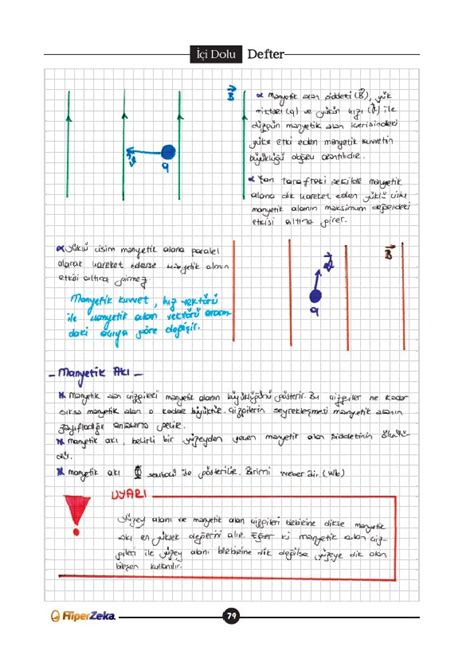 İçi Dolu Defter
B
α Manyetik alan şiddeti (B), yük
miktarı (q) ve yükün hızı (V) ile
düzgün manyetik alan içerisindeki
yüke etki eden manyetik kuvvetin
büyüklüğü doğru orantılıdır.
q
α Yan taraftaki şekilde manyetik
alana dik hareket eden yüklü
manyetik alanın maksimum
etkisi altına girer.
α Yüklü cisim manyetik alana paralel
olarak hareket ederse manyetik alanın
etkisi altına girmez
B
q
Manyetik kuvvet, hız vektörü
ile manyetik alan vektörü arasın-
daki açıya göre değişir.
- Manyetik Akı -
Manyetik alan çizgileri manyetik alanın büyüklüğünü gösterir. Bu çizgiler ne kadar
sıksa manyetik alan o kadar büyüktür. Çizgilerin seyrekleşmesi manyetik alanın
zayıfladığı anlamına gelir.
Manyetik akı, belirli bir yüzeyden geçen manyetik alan şiddetinin ölçüsü-
dür.
Manyetik akı Φ sembolü ile gösterilir. Birimi weber dir. (Wb)
UYARI
Yüzey alanı ve manyetik alan çizgileri birbirine dikse manyetik
akı en yüksek değerini alır. Eğer ki manyetik alan çizgi-
leri ile yüzey alanı birbirine dik değilse yüzeye dik olan
bileşen kullanılır.
HiperZeka
79